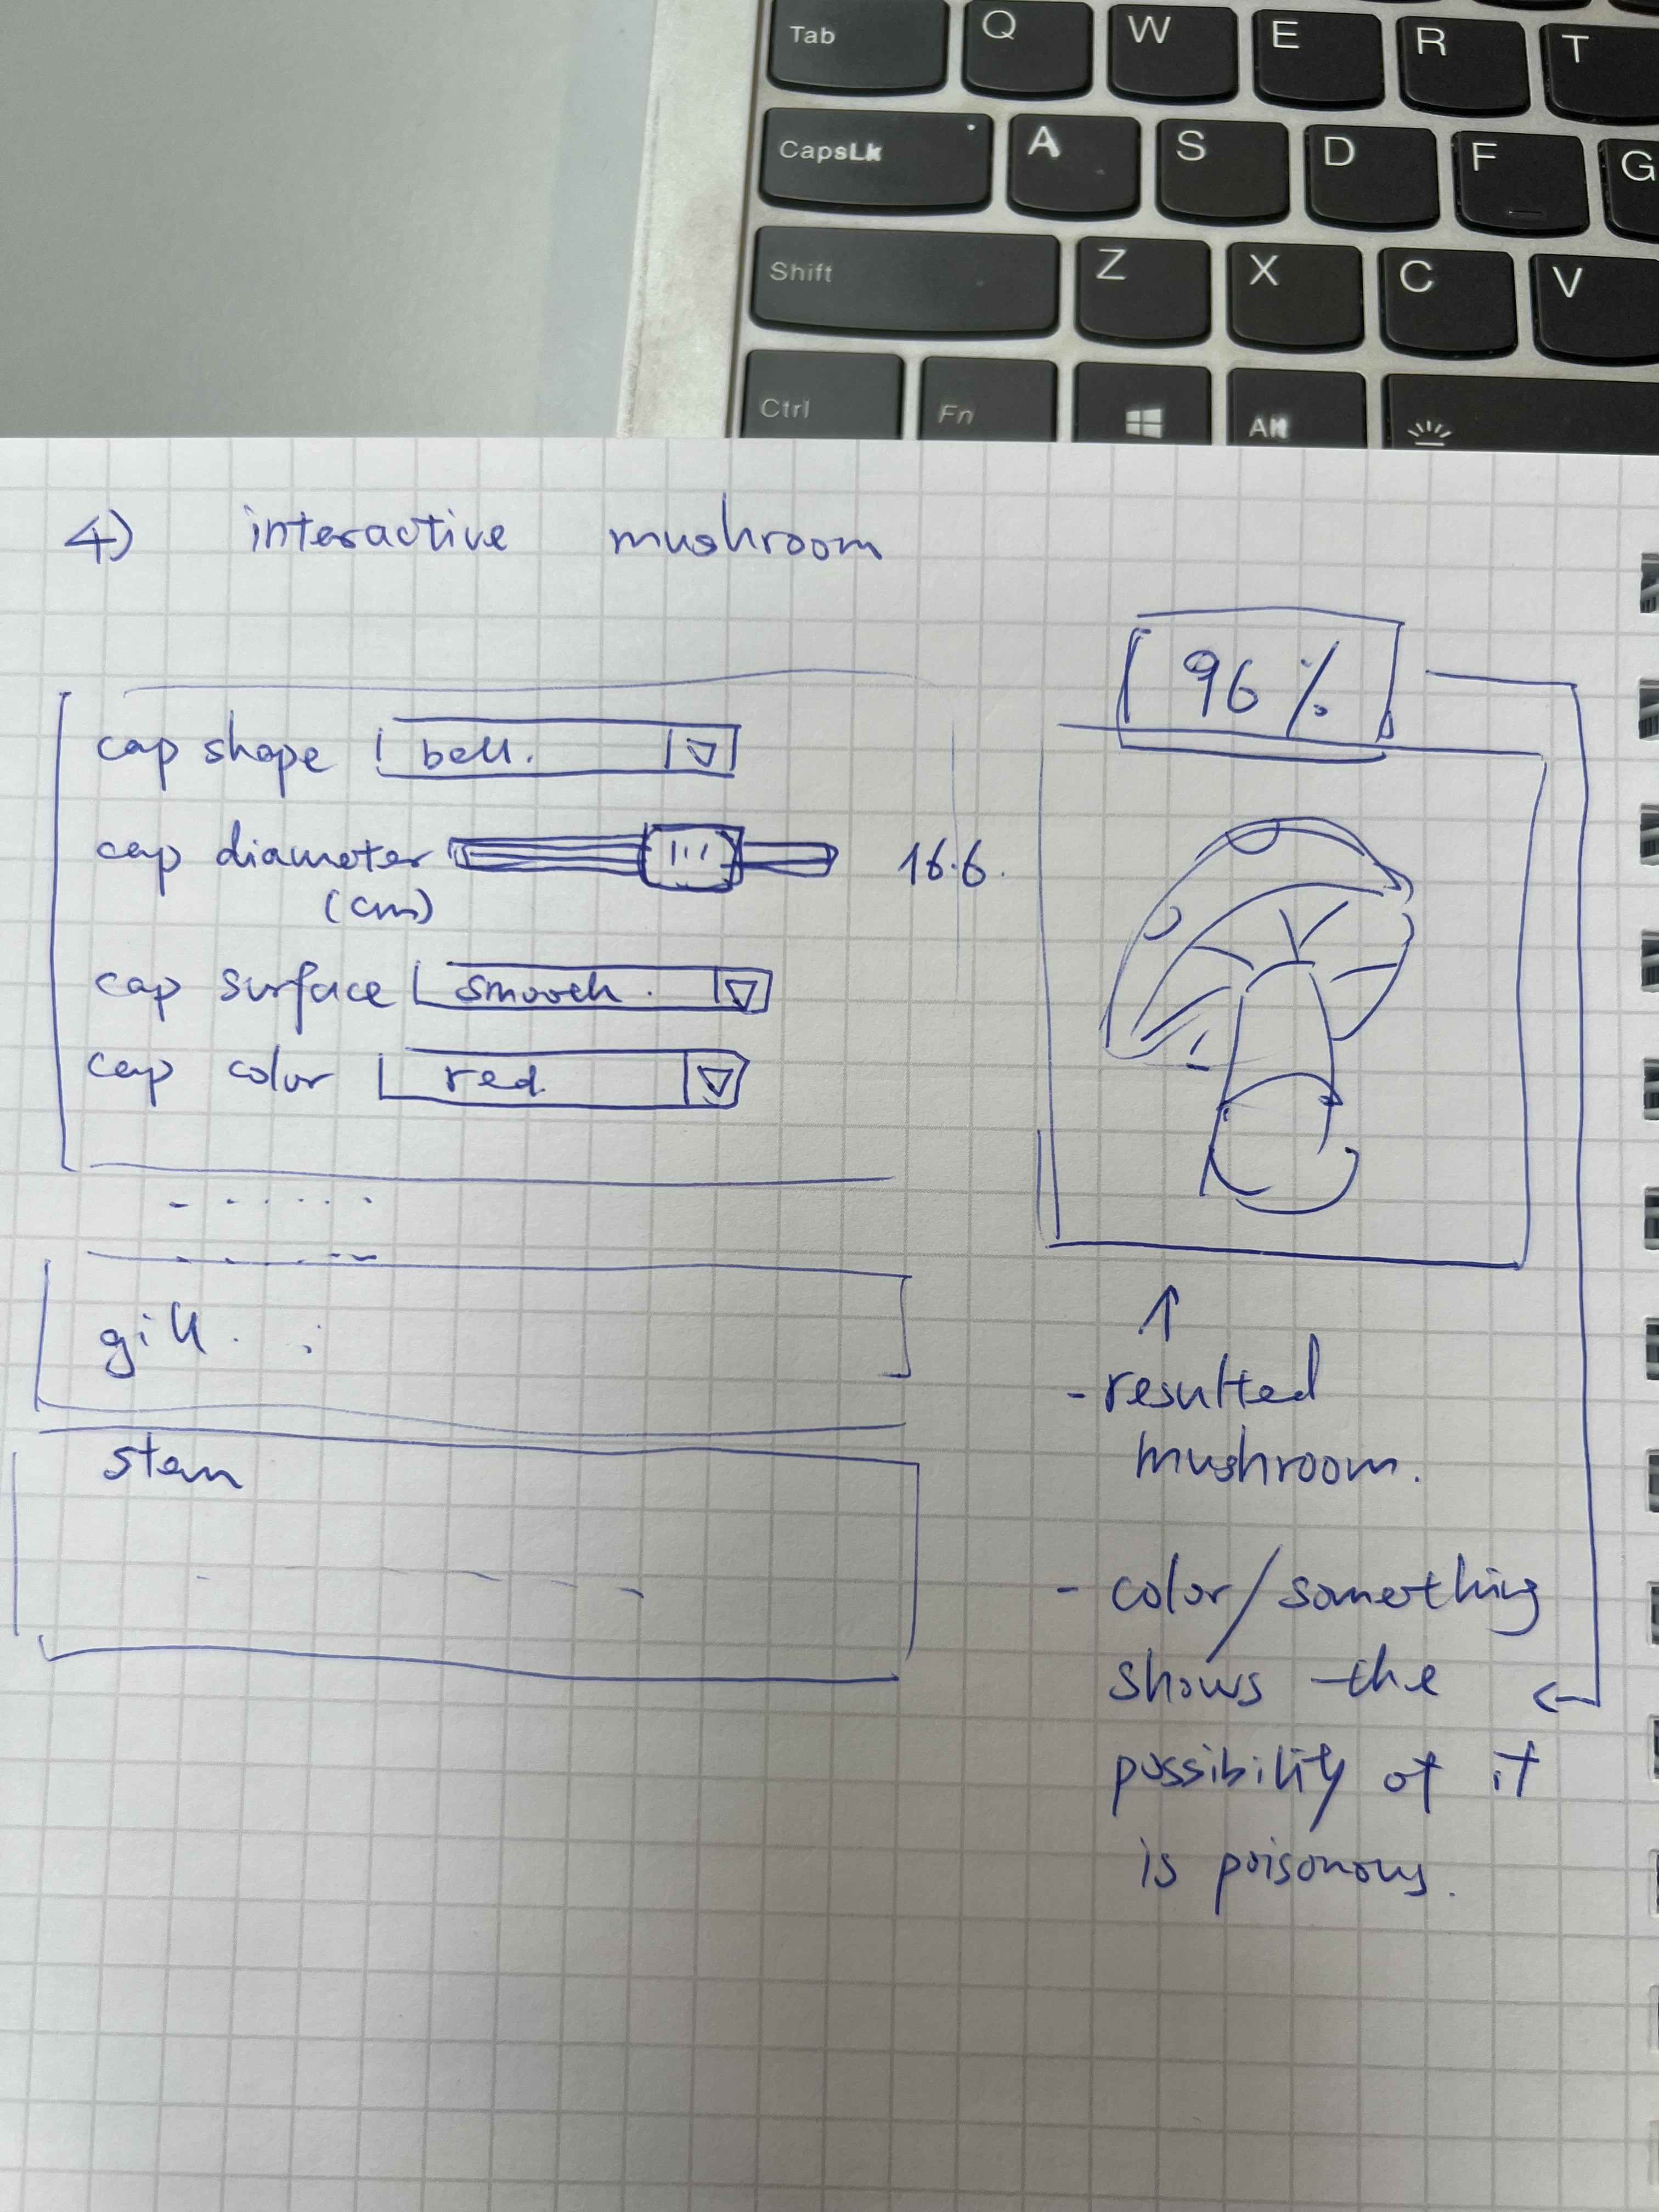 Tab Q W E R T
CapsLk A S D F G
Shift Z X C V
Ctrl Fn Alt
4) interactive mushroom
96%
cap shape bell.
cap diameter 16.6.
(cm)
cap surface smooth.
cap color red.
gill.
stem
- resulted
mushroom.
- color/something
shows the
possibility of it
is poisonous.